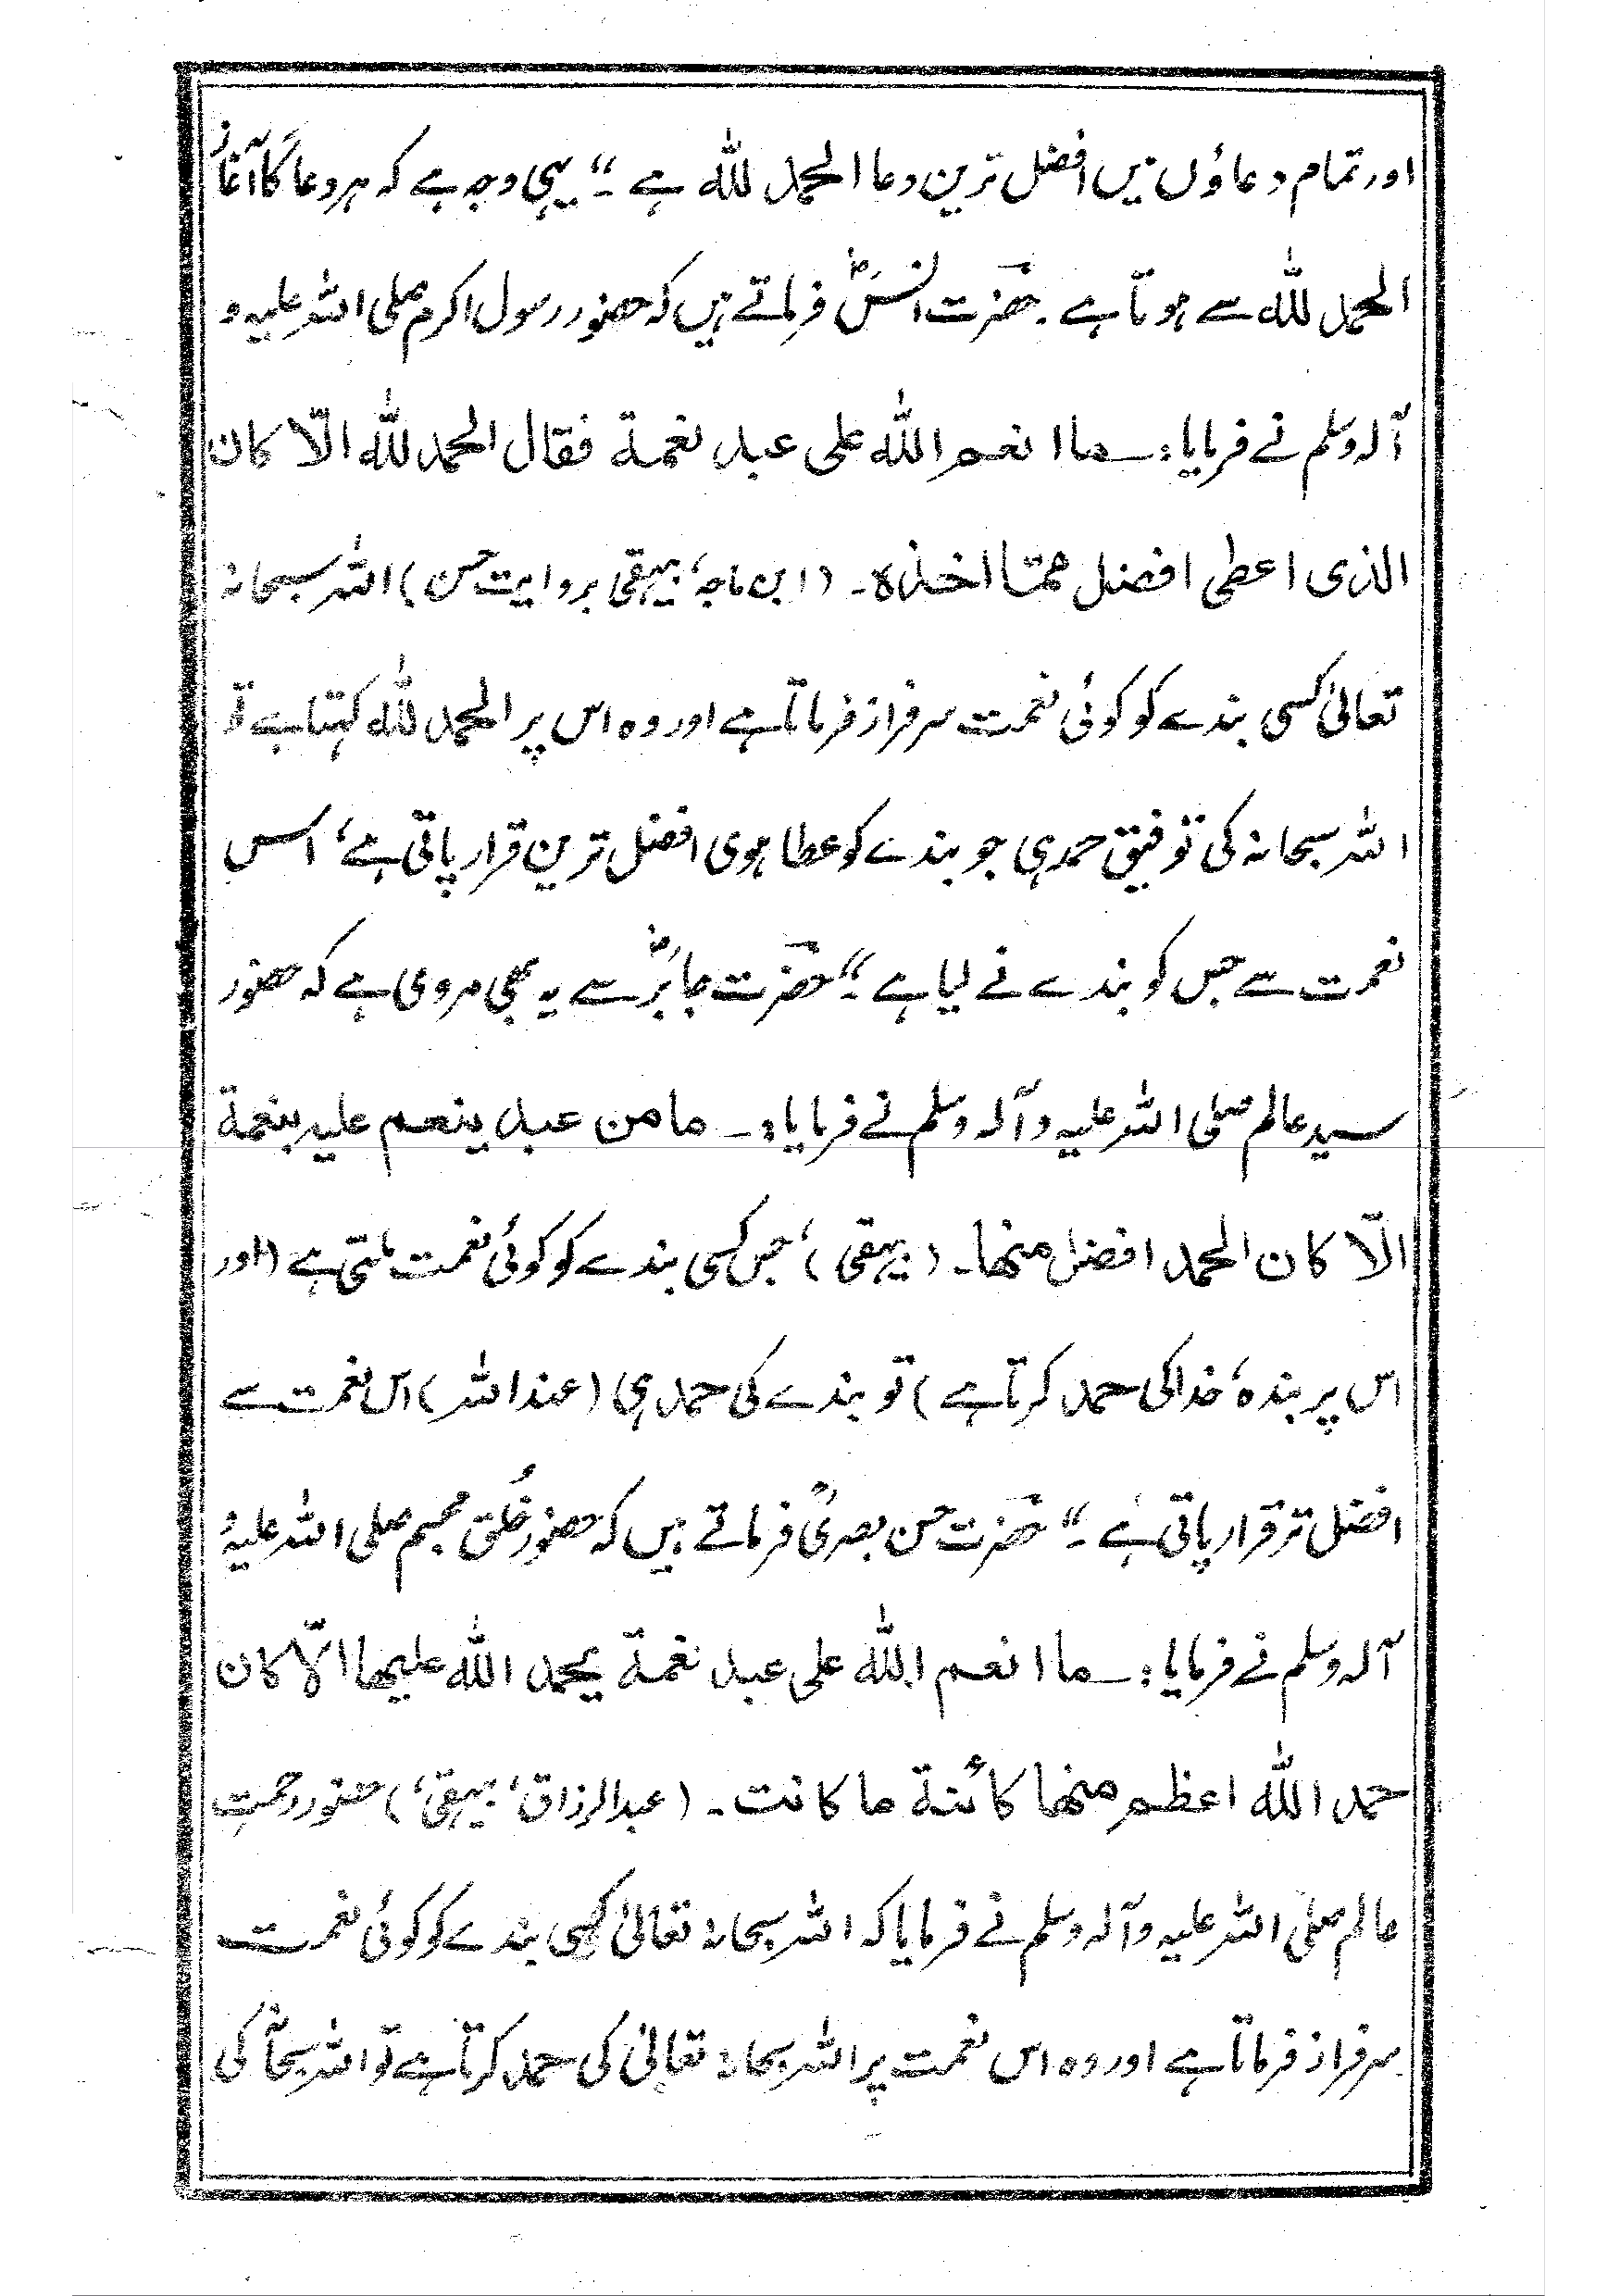 اور تمام دعاؤں میں افضل ترین دعا الحمد للہ ہے ۔“ یہی وجہ ہے کہ ہر دعا کا آغاز
الحمد للہ سے ہوتا ہے ۔ حضرت انسؓ فرماتے ہیں کہ حضور رسول اکرم صلی اللہ علیہ و
آلہ وسلم نے فرمایا :۔ ما انعم اللہ علی عبد نعمة فقال الحمد للہ الّا کان
الذی اعطی افضل ممّا اخذہ ۔ (ابن ماجہ، بیہقی بروایت حسن) اللہ سبحانہ
تعالیٰ کسی بندے کو کوئی نعمت سرفراز فرماتا ہے اور وہ اس پر الحمد للہ کہتا ہے تو
اللہ سبحانہ کی توفیق حمد ہی جو بندے کو عطا ہوی افضل ترین قرار پاتی ہے، اس
نعمت سے جس کو بندے نے لیا ہے ۔“ حضرت جابرؓ سے یہ بھی مروی ہے کہ حضور
سید عالم صلی اللہ علیہ وآلہ وسلم نے فرمایا :۔ ما من عبد ینعم علیہ بنعمة
الّا کان الحمد افضل منھا ۔ (بیہقی)، جس کسی بندے کو کوئی نعمت ملتی ہے (اور
اس پر بندہ، خدا کی حمد کرتا ہے) تو بندے کی حمد ہی (عند اللہ) اس نعمت سے
افضل تر قرار پاتی ہے ۔“ حضرت حسن بصریؒ فرماتے ہیں کہ حضور خُلق مجسم صلی اللہ علیہ و
آلہ وسلم نے فرمایا :۔ ما انعم اللہ علی عبد نعمة یحمد اللہ علیھا الّا کان
حمد اللہ اعظم منھا کائنة ما کانت ۔ (عبدالرزاق، بیہقی،) حضور رحمتِ
عالم صلی اللہ علیہ وآلہ وسلم نے فرمایا کہ اللہ سبحانہ تعالیٰ کسی بندے کو کوئی نعمت
سرفراز فرماتا ہے اور وہ اس نعمت پر اللہ سبحانہ تعالیٰ کی حمد کرتا ہے تو اللہ سبحانہ کی